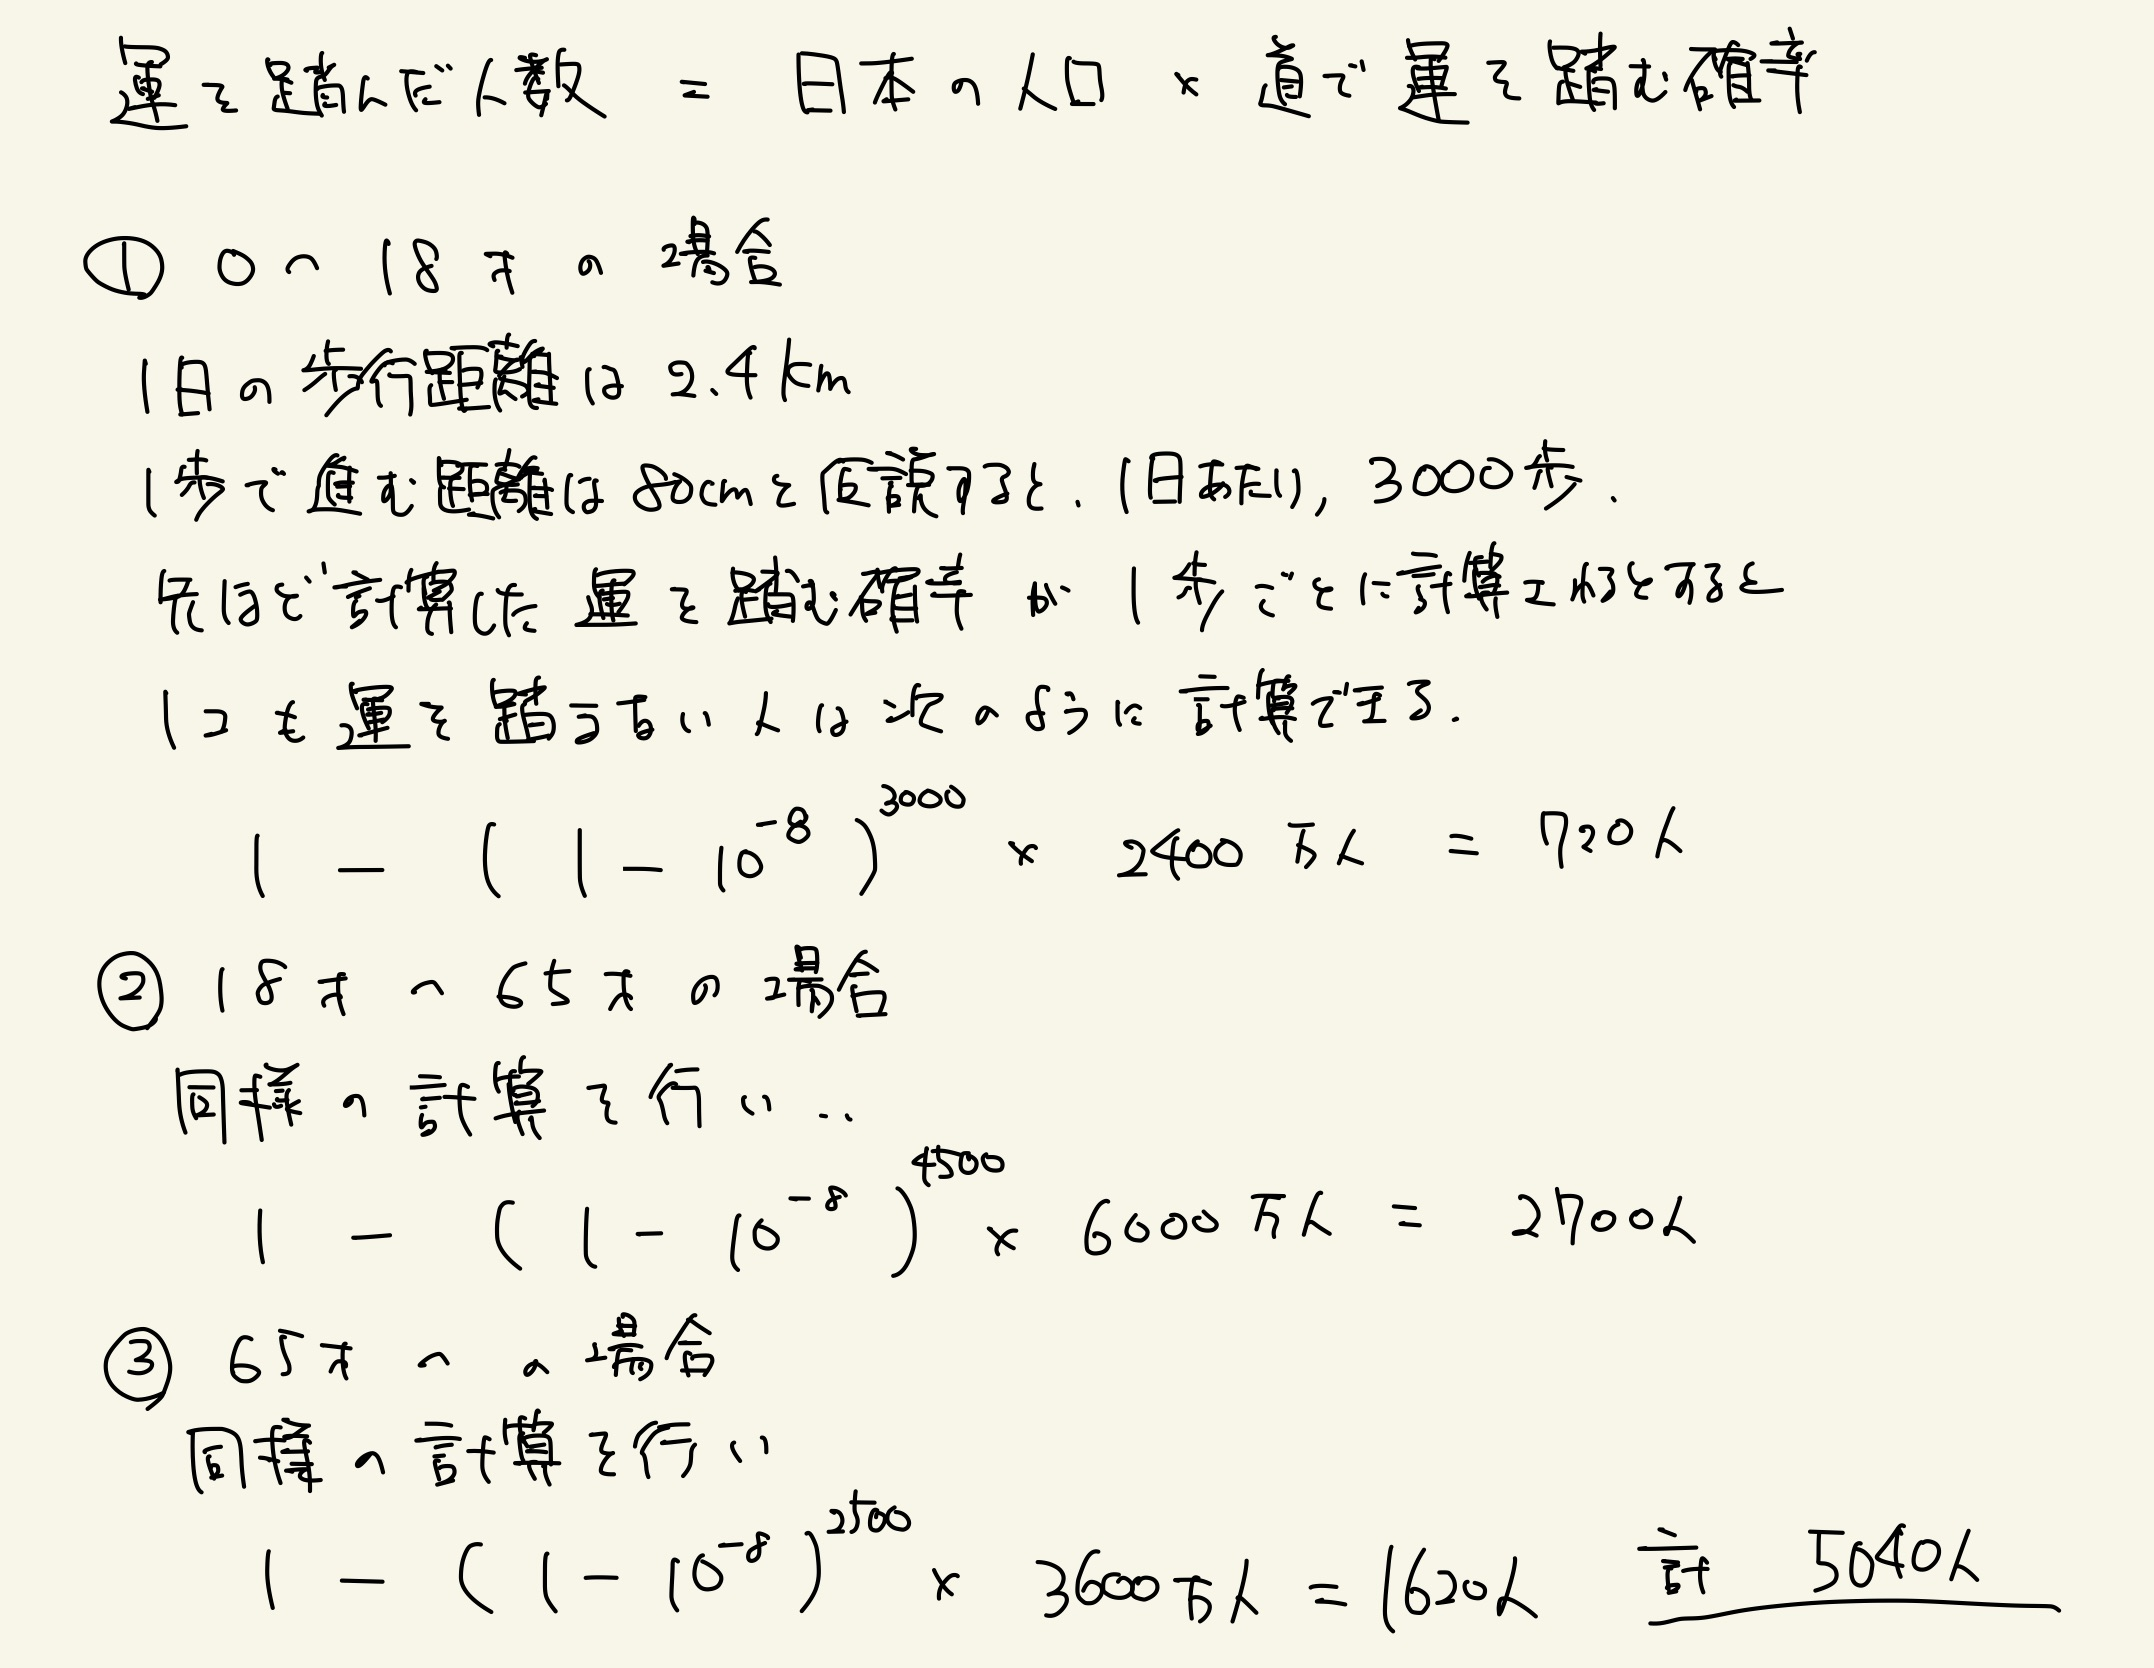 運を踏んだ人数 = 日本の人口 × 道で運を踏む確率
① 0〜18才の場合
1日の歩行距離は2.4km
1歩で進む距離は80cmと仮説すると、1日あたり, 3000歩.
先ほど計算した運を踏む確率が1歩ごとに計算されるとすると
1コも運を踏まない人は次のように計算できる.
1 - (1 - 10^-8)^3000 × 2400万人 = 720人
② 18才〜65才の場合
同様の計算を行い...
1 - (1 - 10^-8)^4500 × 6000万人 = 2700人
③ 65才〜の場合
同様の計算を行い
1 - (1 - 10^-8)^2500 × 3600万人 = 1620人 計 5040人